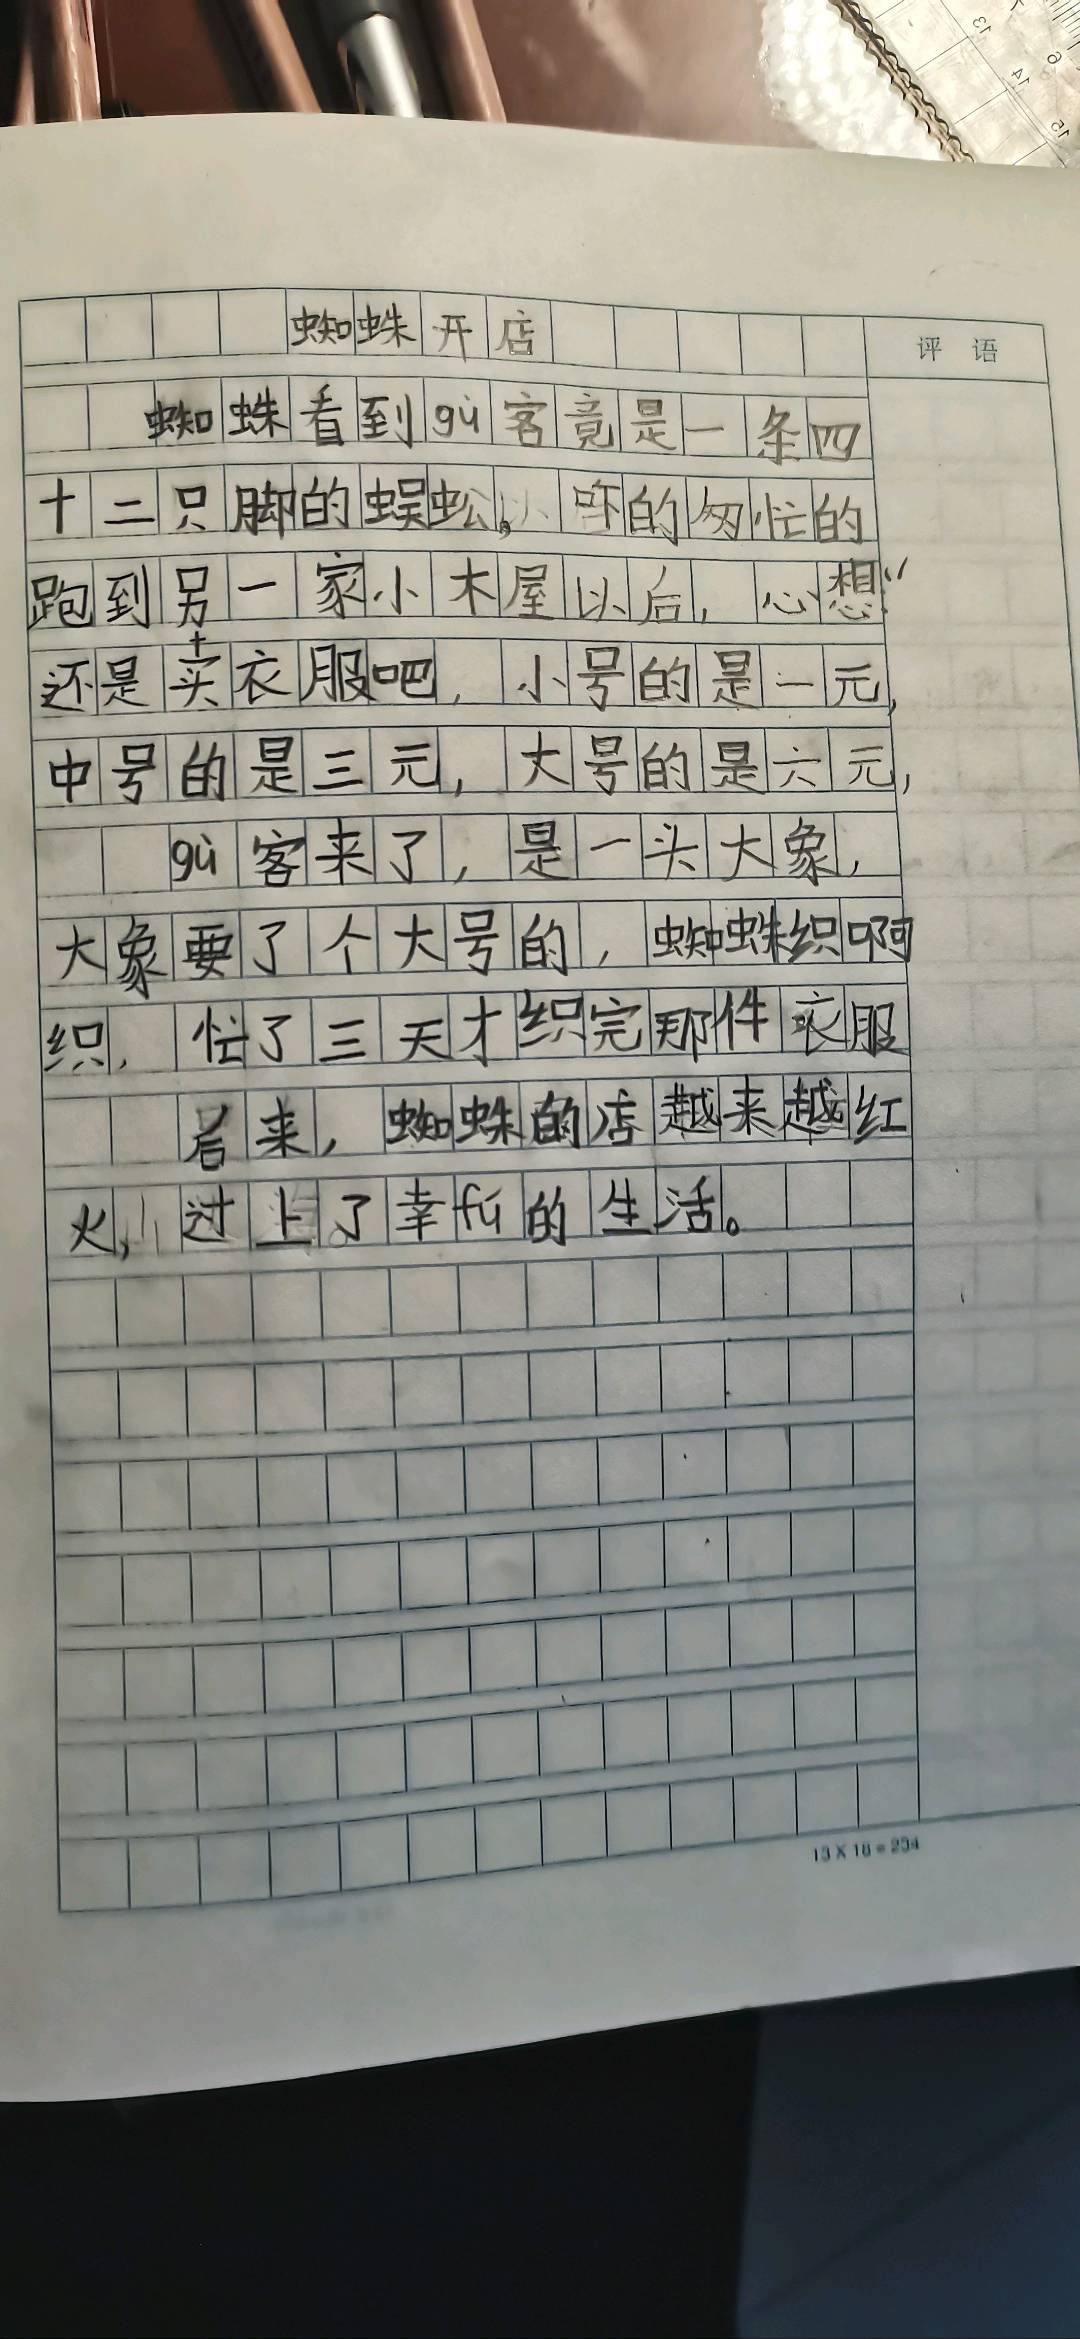 蜘蛛开店
评语
蜘蛛看到gù客竟是一条四
十二只脚的蜈蚣。吓的匆忙的
跑到另一家小木屋以后,心想:“
还是卖衣服吧,小号的是一元,
中号的是三元,大号的是六元,
gù客来了,是一头大象,
大象要了个大号的,蜘蛛织啊
织,忙了三天才织完那件衣服
后来,蜘蛛的店越来越红
火,过上了幸fú的生活。
13×18=234